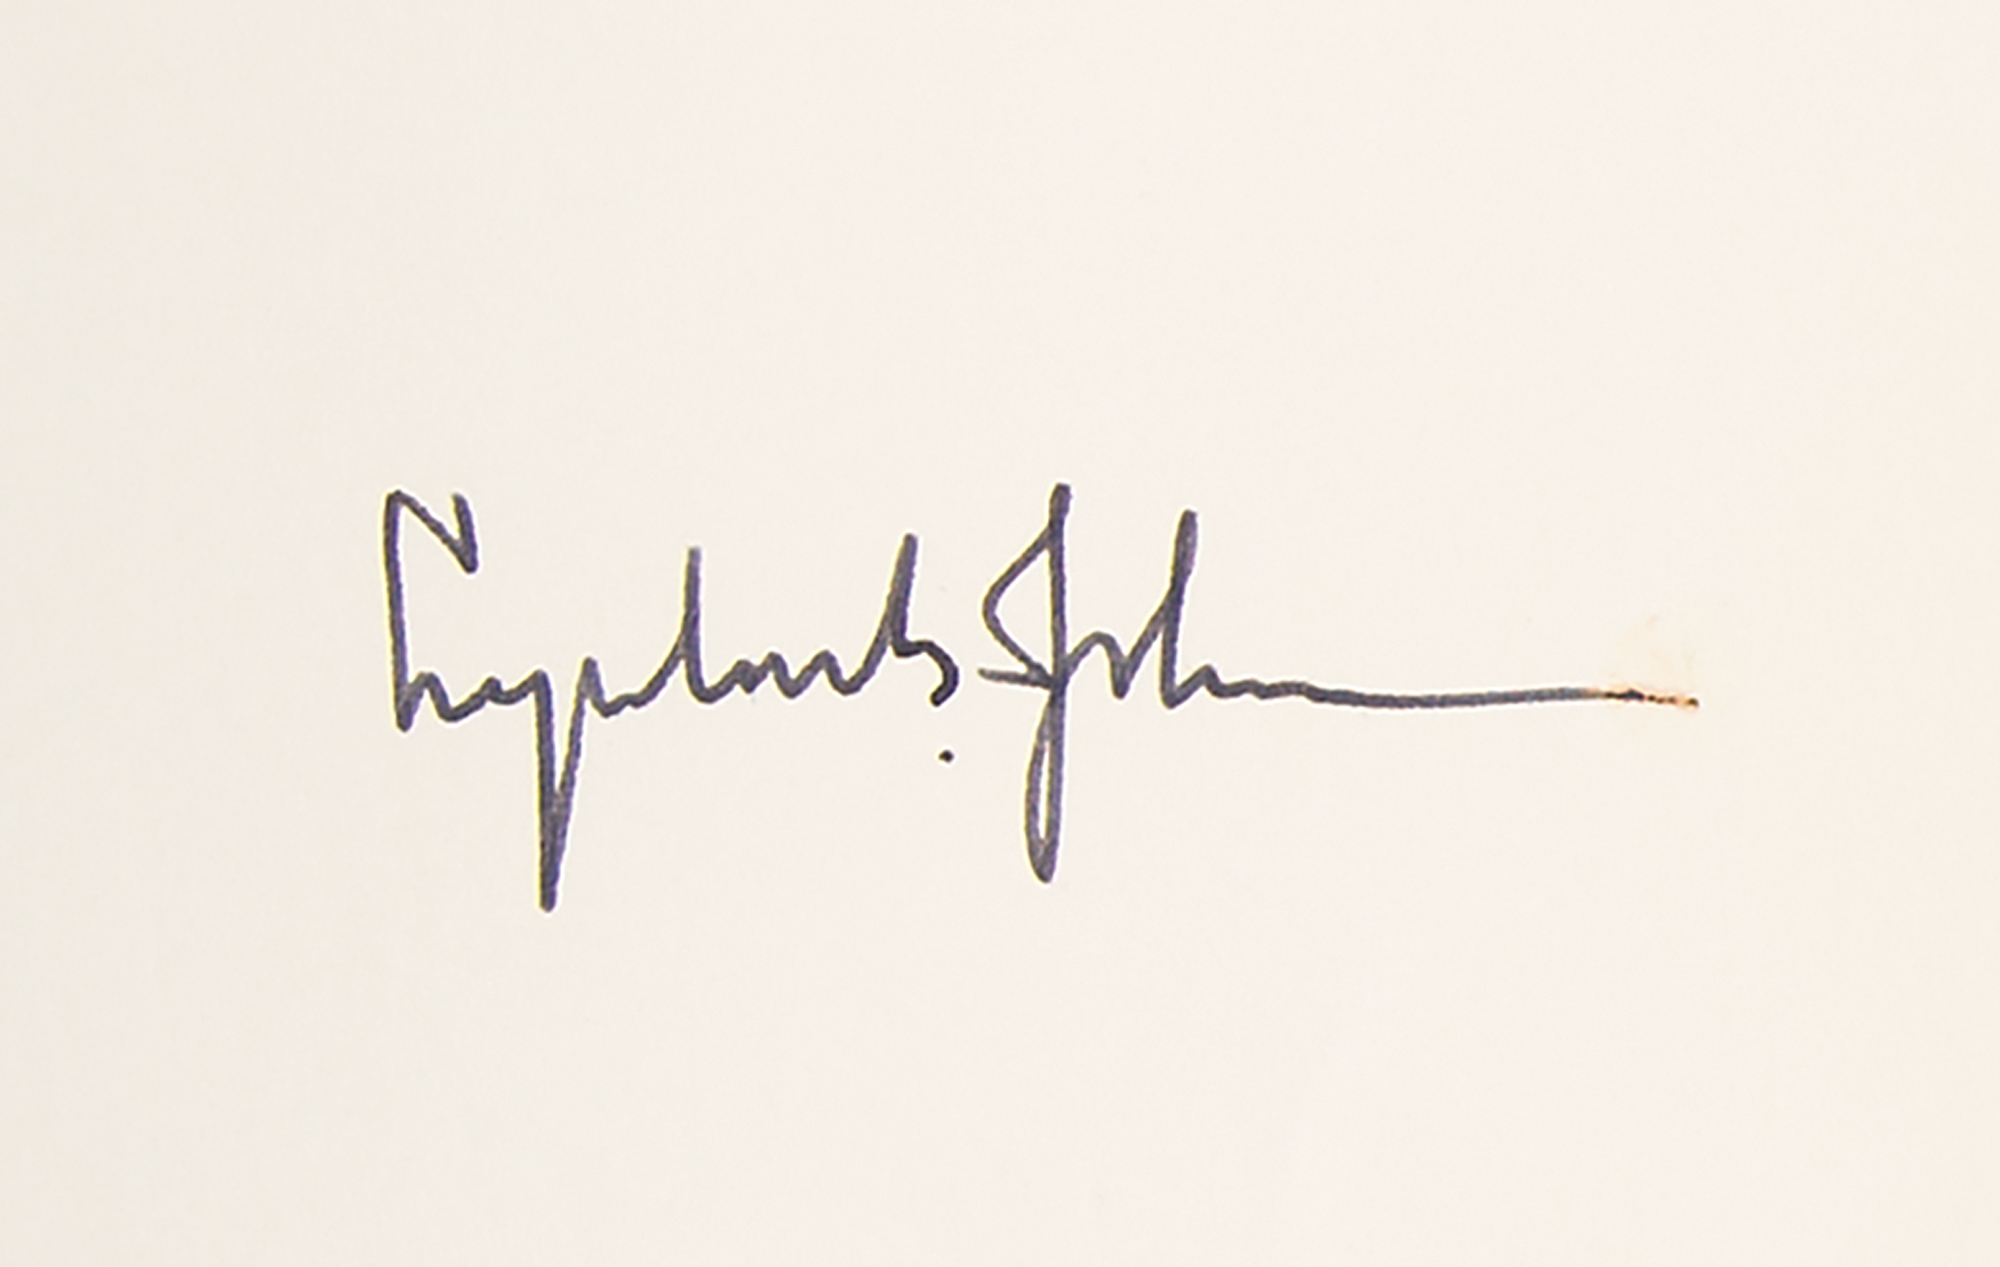 Lyndon B. Johnson